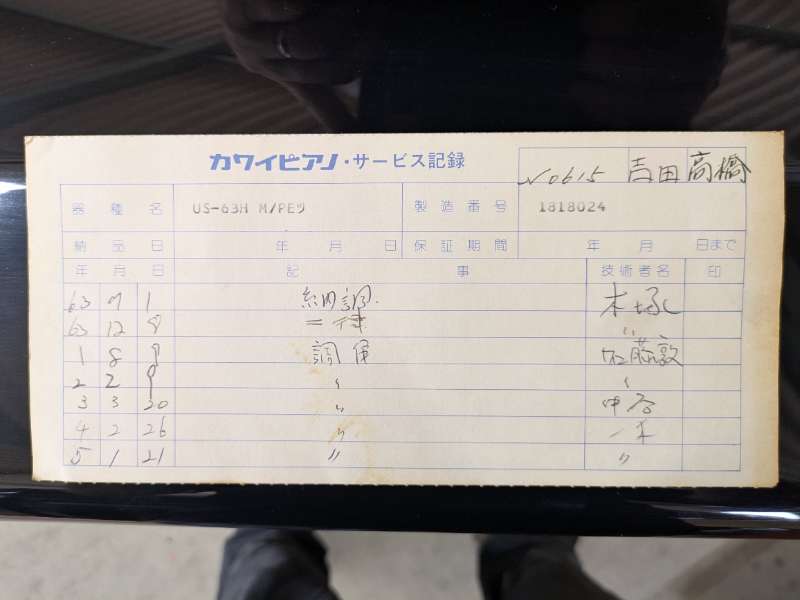 カワイピアノ・サービス記録
No615 吉田 高橋
器種名 US-63H M/PEツ 製造番号 1818024
納品日 年 月 日 保証期間 年 月 日まで
年 月 日 記事 技術者名 印
63 7 1 納調 木塚
63 12 8 〃
1 8 9 調律 加藤敦
2 2 9 〃 〃
3 3 20 〃 中谷
4 2 26 〃
5 1 21 〃 〃